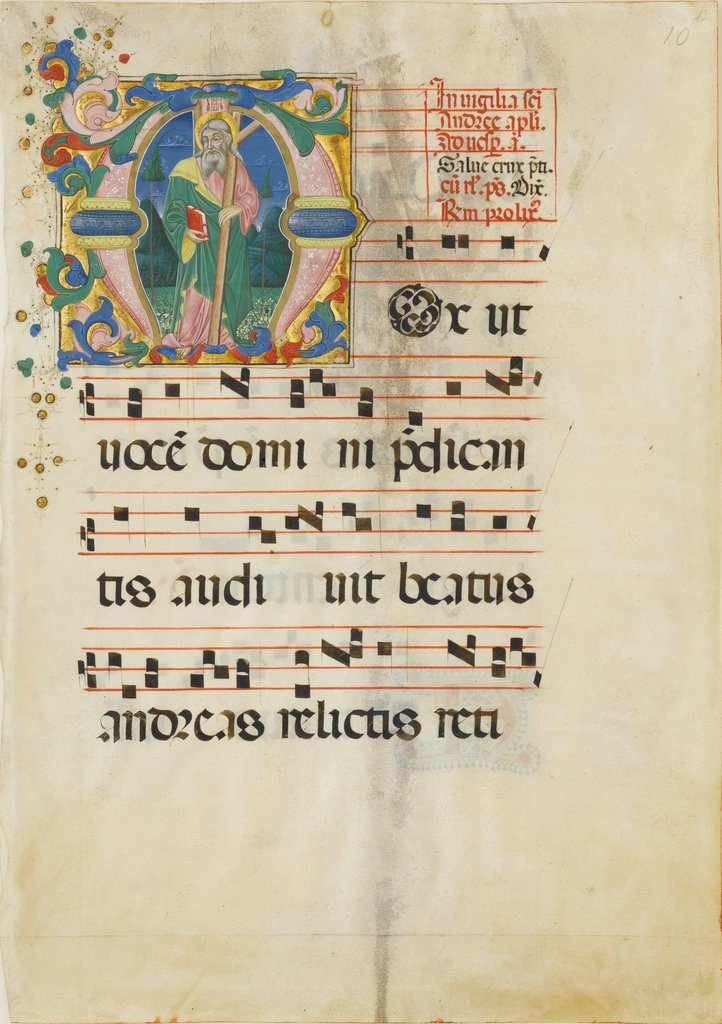 10
In uigilia sci
Andree apli.
Ad uesp. a.
Salue crux p̄ti.
cū rł. p̄s. Dix̄.
Rm prolix̄.
Mox ut
uocē domi ni p̄dican
tis audi uit beatus
andreas relictis reti